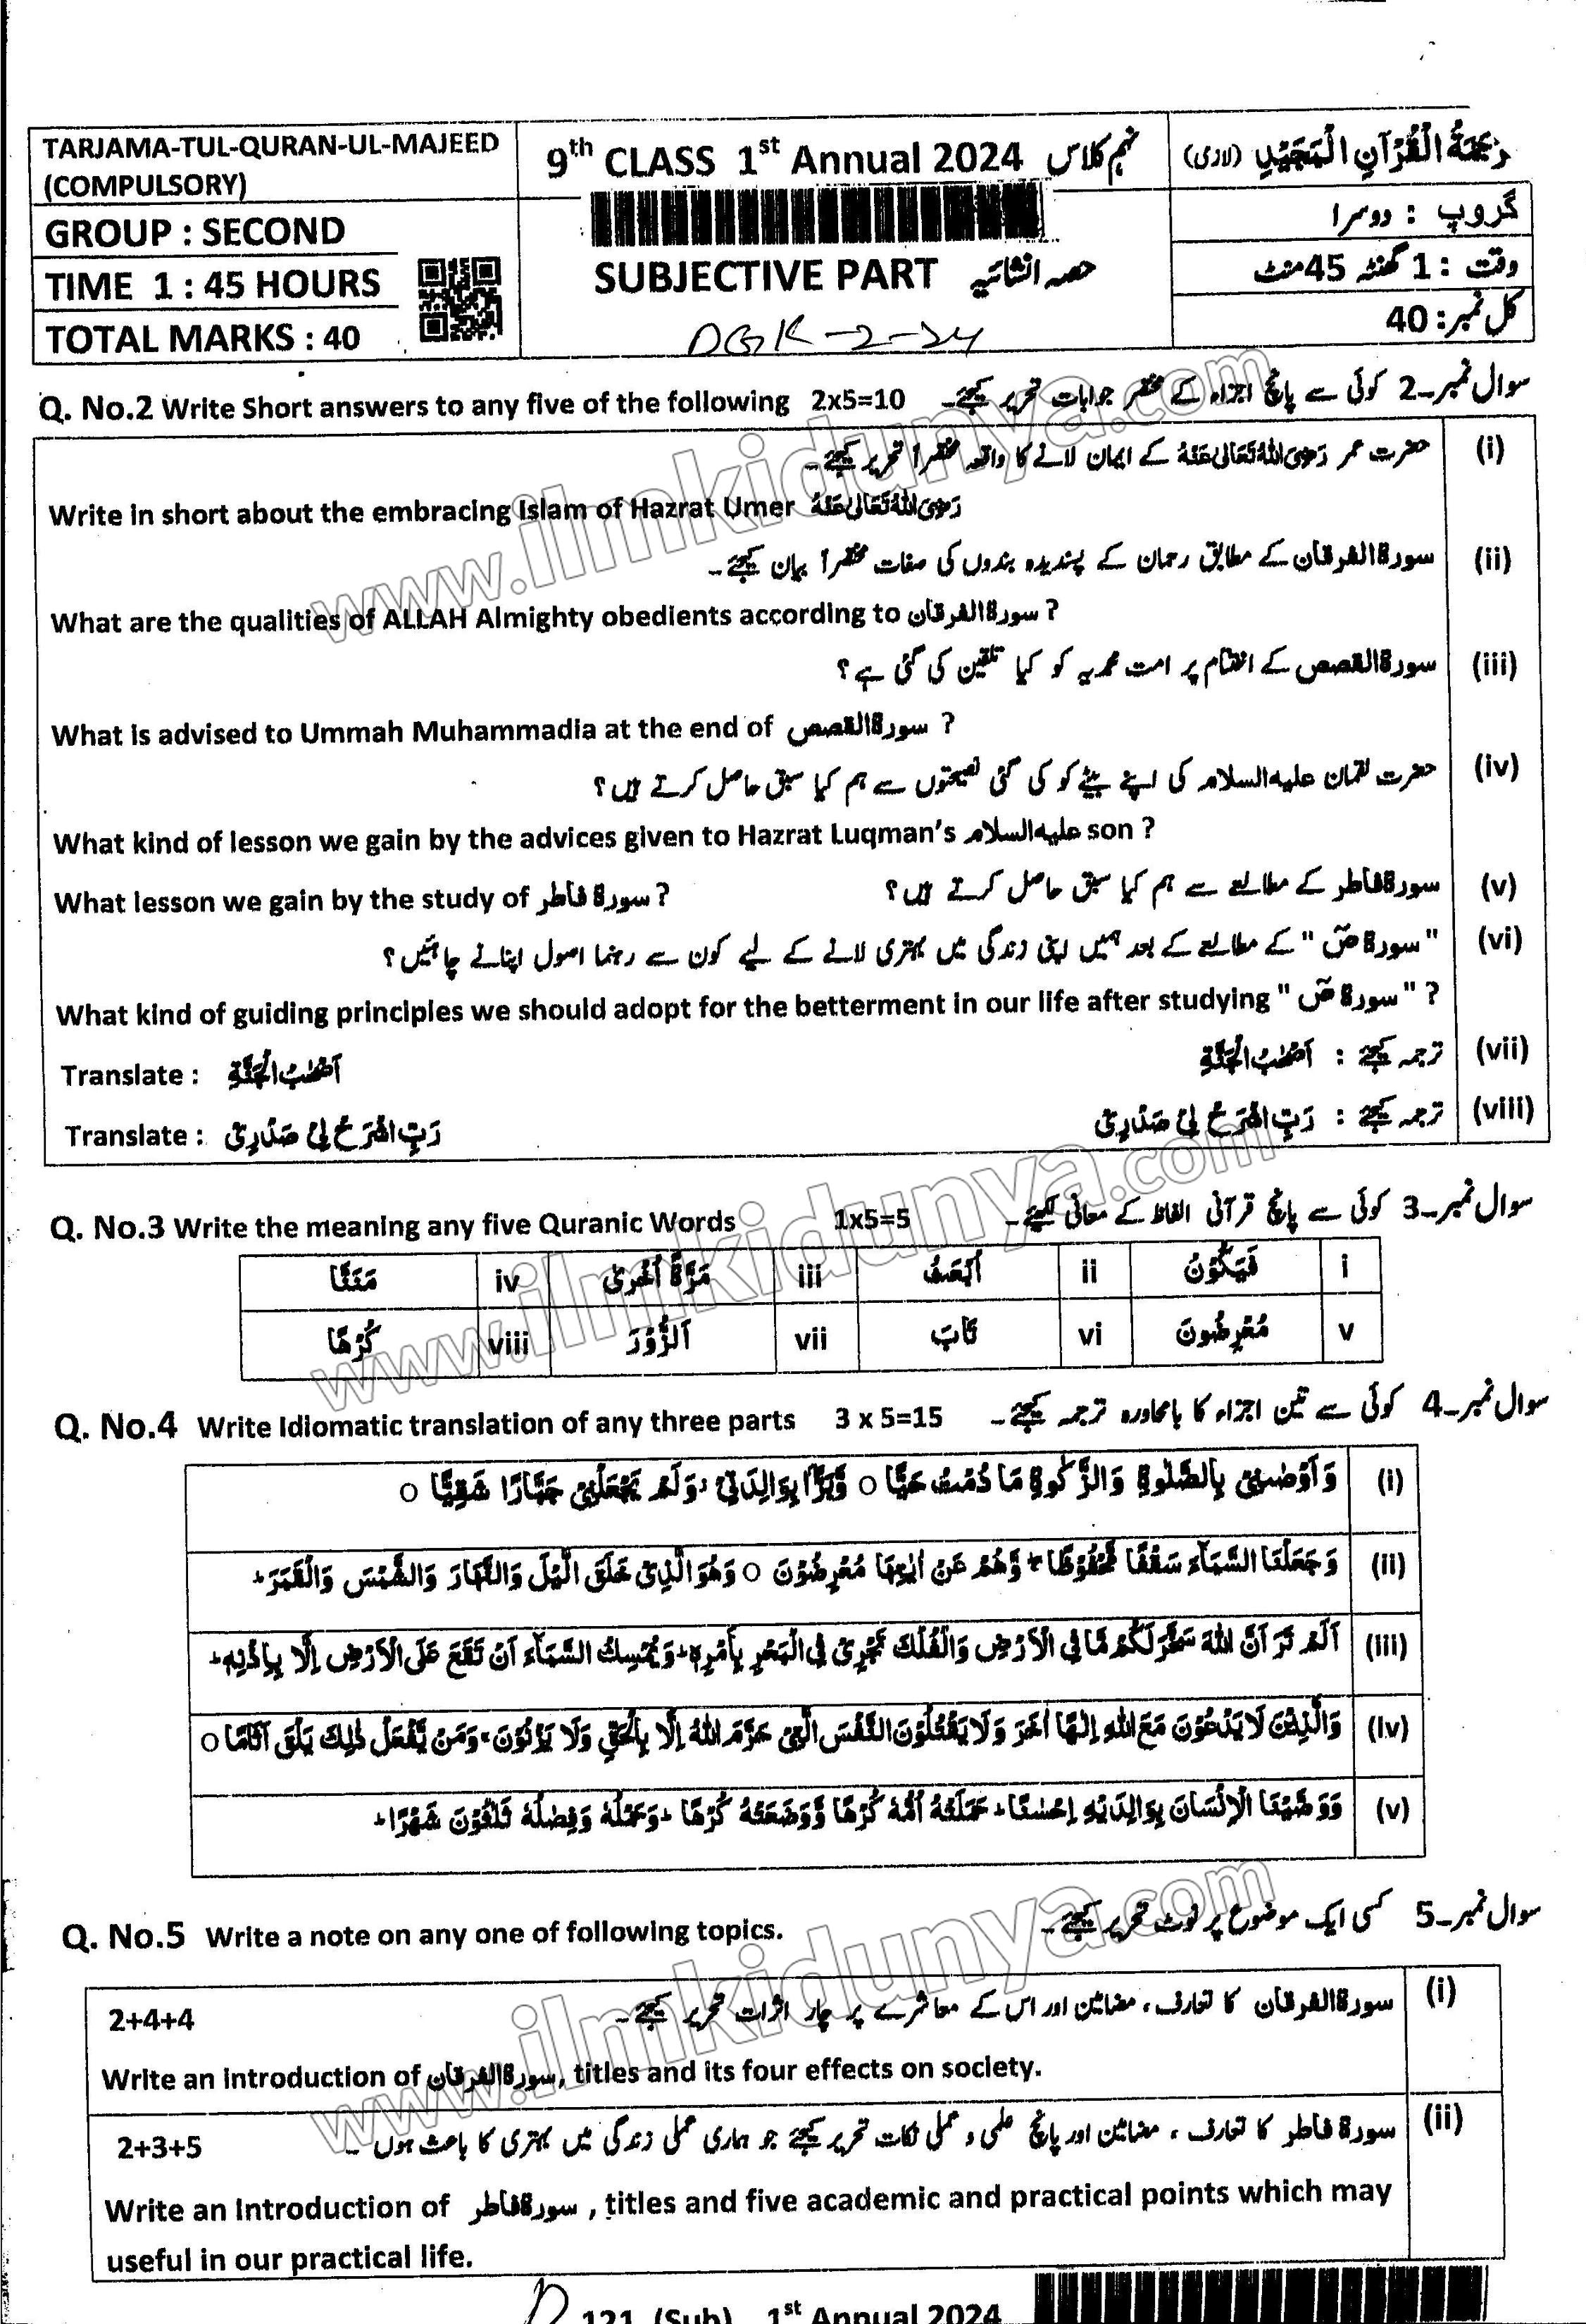 TARJAMA-TUL-QURAN-UL-MAJEED
(COMPULSORY)
GROUP : SECOND
TIME 1 : 45 HOURS
TOTAL MARKS : 40
9th CLASS 1st Annual 2024 نہم کلاس
SUBJECTIVE PART حصہ انشائیہ
DGK-2-24
تَرْجَمَةُ الْقُرْآنِ الْمَجِيْدِ (لازمی)
گروپ : دوسرا
وقت : 1 گھنٹہ 45 منٹ
کل نمبر: 40
Q. No.2 Write Short answers to any five of the following 2x5=10 سوال نمبر۔2 کوئی سے پانچ اجزاء کے مختصر جوابات تحریر کیجئے۔
(i) حضرت عمر رَضِیَ اللّٰہُ تَعَالیٰ عَنْہُ کے ایمان لانے کا واقعہ مختصراً تحریر کیجئے۔
Write in short about the embracing Islam of Hazrat Umer رَضِیَ اللّٰہُ تَعَالیٰ عَنْہُ
(ii) سورۃالفرقان کے مطابق رحمان کے پسندیدہ بندوں کی صفات مختصراً بیان کیجئے۔
What are the qualities of ALLAH Almighty obedients according to سورۃالفرقان ?
(iii) سورۃالقصص کے اختتام پر امت محمدیہ کو کیا تلقین کی گئی ہے؟
What is advised to Ummah Muhammadia at the end of سورۃالقصص ?
(iv) حضرت لقمان علیہ السلام کی اپنے بیٹے کو کی گئی نصیحتوں سے ہم کیا سبق حاصل کرتے ہیں؟
What kind of lesson we gain by the advices given to Hazrat Luqman's علیہ السلام son ?
(v) سورۃفاطر کے مطالعے سے ہم کیا سبق حاصل کرتے ہیں؟ What lesson we gain by the study of سورۃ فاطر ?
(vi) "سورۃ صٓ" کے مطالعے کے بعد ہمیں اپنی زندگی میں بہتری لانے کے لیے کون سے رہنما اصول اپنانے چاہئیں؟
What kind of guiding principles we should adopt for the betterment in our life after studying "سورۃ صٓ" ?
(vii) ترجمہ کیجئے : اَصْحٰبُ الْجَنَّةِ Translate : اَصْحٰبُ الْجَنَّةِ
(viii) ترجمہ کیجئے : رَبِّ اشْرَحْ لِيْ صَدْرِيْ Translate : رَبِّ اشْرَحْ لِيْ صَدْرِيْ
Q. No.3 Write the meaning any five Quranic Words 1x5=5 سوال نمبر۔3 کوئی سے پانچ قرآنی الفاظ کے معانی لکھیئے۔
i فَيَكُوْنُ ii iii مَرَّةً اُخْرٰى iv مَنَنَّا
v مُعْرِضُوْنَ vi تَابَ vii اَلزُّوْرَ viii كُرْهًا
Q. No.4 Write Idiomatic translation of any three parts 3 x 5=15 سوال نمبر۔4 کوئی سے تین اجزاء کا بامحاورہ ترجمہ کیجئے۔
(i) وَاَوْصٰنِيْ بِالصَّلٰوةِ وَالزَّكٰوةِ مَا دُمْتُ حَيًّا ○ وَّبَرًّا بِوَالِدَتِيْ وَلَمْ يَجْعَلْنِيْ جَبَّارًا شَقِيًّا ○
(ii) وَجَعَلْنَا السَّمَآءَ سَقْفًا مَّحْفُوْظًا وَّهُمْ عَنْ اٰيٰتِهَا مُعْرِضُوْنَ ○ وَهُوَ الَّذِيْ خَلَقَ الَّيْلَ وَالنَّهَارَ وَالشَّمْسَ وَالْقَمَرَ
(iii) اَلَمْ تَرَ اَنَّ اللّٰهَ سَخَّرَ لَكُمْ مَّا فِي الْاَرْضِ وَالْفُلْكَ تَجْرِيْ فِي الْبَحْرِ بِاَمْرِهٖ وَيُمْسِكُ السَّمَآءَ اَنْ تَقَعَ عَلَى الْاَرْضِ اِلَّا بِاِذْنِهٖ
(iv) وَالَّذِيْنَ لَا يَدْعُوْنَ مَعَ اللّٰهِ اِلٰهًا اٰخَرَ وَلَا يَقْتُلُوْنَ النَّفْسَ الَّتِيْ حَرَّمَ اللّٰهُ اِلَّا بِالْحَقِّ وَلَا يَزْنُوْنَ وَمَنْ يَّفْعَلْ ذٰلِكَ يَلْقَ اَثَامًا ○
(v) وَوَصَّيْنَا الْاِنْسَانَ بِوَالِدَيْهِ اِحْسٰنًا حَمَلَتْهُ اُمُّهٗ كُرْهًا وَّوَضَعَتْهُ كُرْهًا وَحَمْلُهٗ وَفِصٰلُهٗ ثَلٰثُوْنَ شَهْرًا
Q. No.5 Write a note on any one of following topics. سوال نمبر۔5 کسی ایک موضوع پر نوٹ تحریر کیجئے۔
(i) سورۃالفرقان کا تعارف، مضامین اور اس کے معاشرے پر چار اثرات تحریر کیجئے۔ 2+4+4
Write an introduction of سورۃالفرقان, titles and its four effects on society.
(ii) سورۃ فاطر کا تعارف، مضامین اور پانچ علمی و عملی نکات تحریر کیجئے جو ہماری عملی زندگی میں بہتری کا باعث ہوں۔ 2+3+5
Write an Introduction of سورۃفاطر , titles and five academic and practical points which may
useful in our practical life.
121 (Sub) 1st Annual 2024
www.ilmkidunya.com
www.ilmkidunya.com
www.ilmkidunya.com